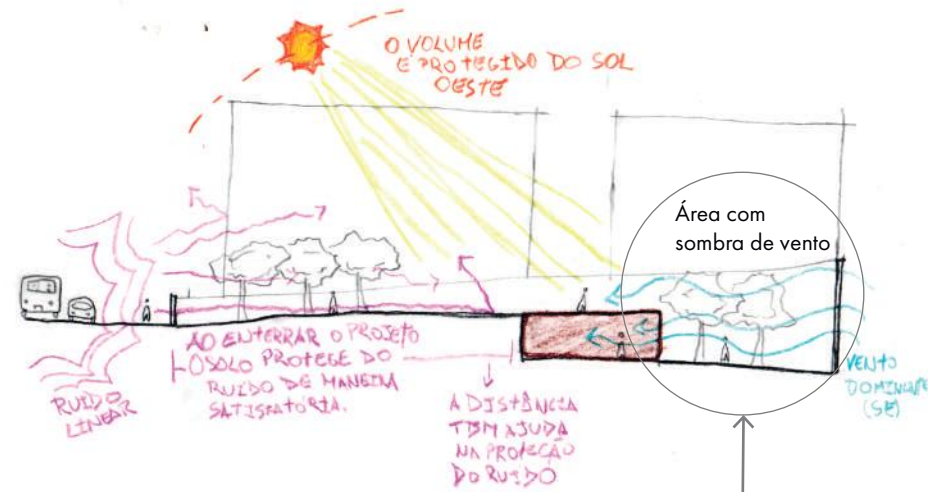 O VOLUME
É PROTEGIDO DO SOL
OESTE
Área com
sombra de vento
AO ENTERRAR O PROJETO
O SOLO PROTEGE DO
RUIDO DE MANEIRA
SATISFATÓRIA.
RUIDO
LINEAR
A DISTÂNCIA
TBM AJUDA
NA PROTEÇÃO
DO RUIDO
VENTO
DOMINANTE
(SE)